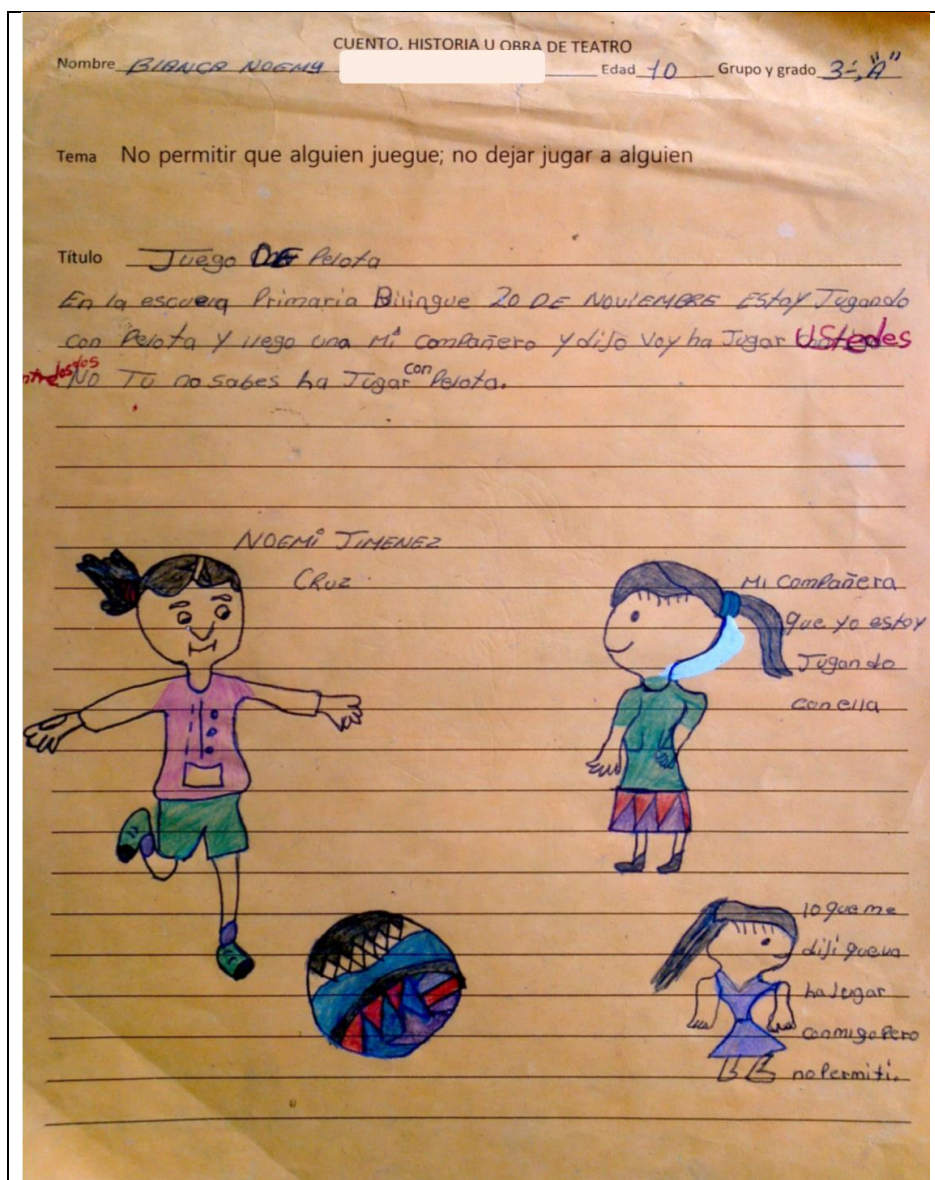 CUENTO, HISTORIA U OBRA DE TEATRO
Nombre BLANCA NOEMY Edad 10 Grupo y grado 3-, "A"
Tema No permitir que alguien juegue; no dejar jugar a alguien
Título Juego DE Pelota
En la escuela Primaria Bilingue 20 DE NOVIEMBRE Estoy Jugando
con Pelota Y llego una Mi compañero Y dijo Voy ha Jugar Ustedes
NO Tu no sabes ha Jugar con Pelota.
NOEMI JIMENEZ
CRUZ
Mi compañera
que yo estoy
Jugando
con ella
lo que me
diji que va
ha Jugar
conmigo Pero
no Permiti.